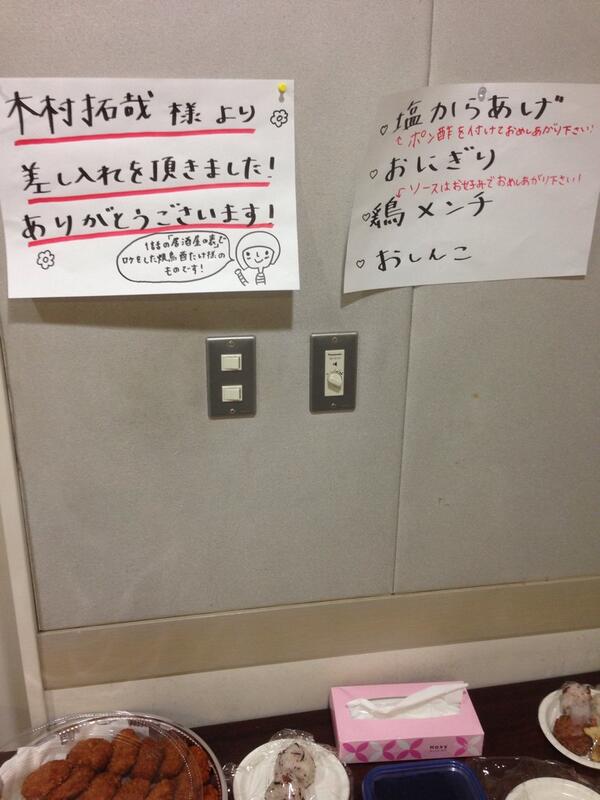 木村拓哉 様 より
差し入れを頂きました!
ありがとうございます!
1話の「居酒屋の表」で
ロケをした焼鳥酉たけ様の
ものです!
♡塩からあげ
ポン酢を付けておめしあがり下さい!
♡おにぎり
ソースはお好みでおめしあがり下さい!
♡鶏メンチ
♡おしんこ
Panasonic